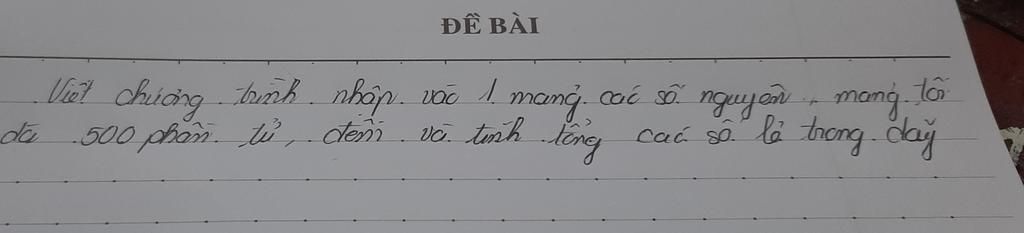 ĐỀ BÀI
Viết chương trình nhập vào 1 mảng các số nguyên, mảng tối
đa 500 phần tử, đếm và tính tổng các số lẻ trong dãy